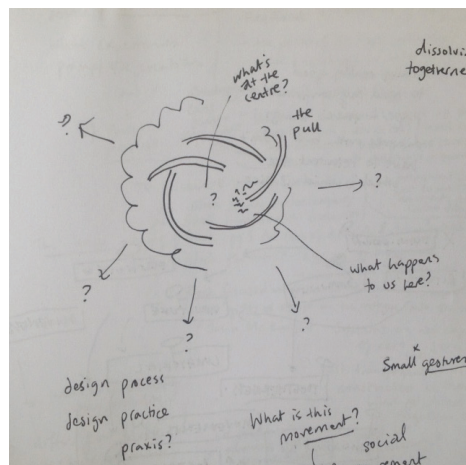 dissolvi
togetherne
what's
at the
centre?
the
pull
?
?
?
what happens
to us here?
?
?
?
Small gestures
design process
design practice
praxis?
What is this
movement?
social
ement